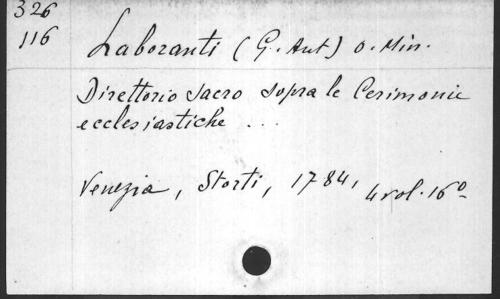 326
116
Laboranti (G. Ant) o. Min.
Direttorio sacro sopra le Cerimonie
ecclesiastiche ...
Venezia, Storti, 1784, 4 vol. 16º